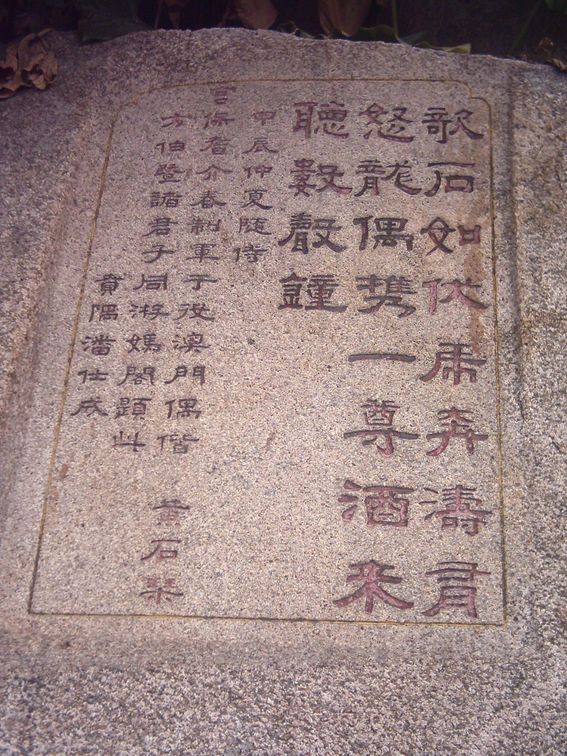 欹石如伏虎奔濤有
怒龍偶携一尊酒来
聽數聲鐘
甲辰仲夏随侍
宮保耆介春制軍于役澳門偶偕黄石琴
方伯暨諸君子同游媽閣題此
番禺潘仕成